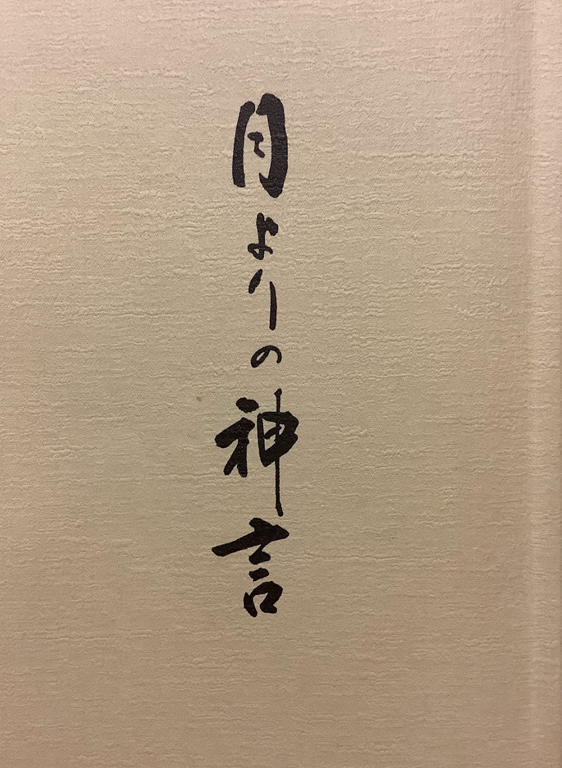 月よりの神言